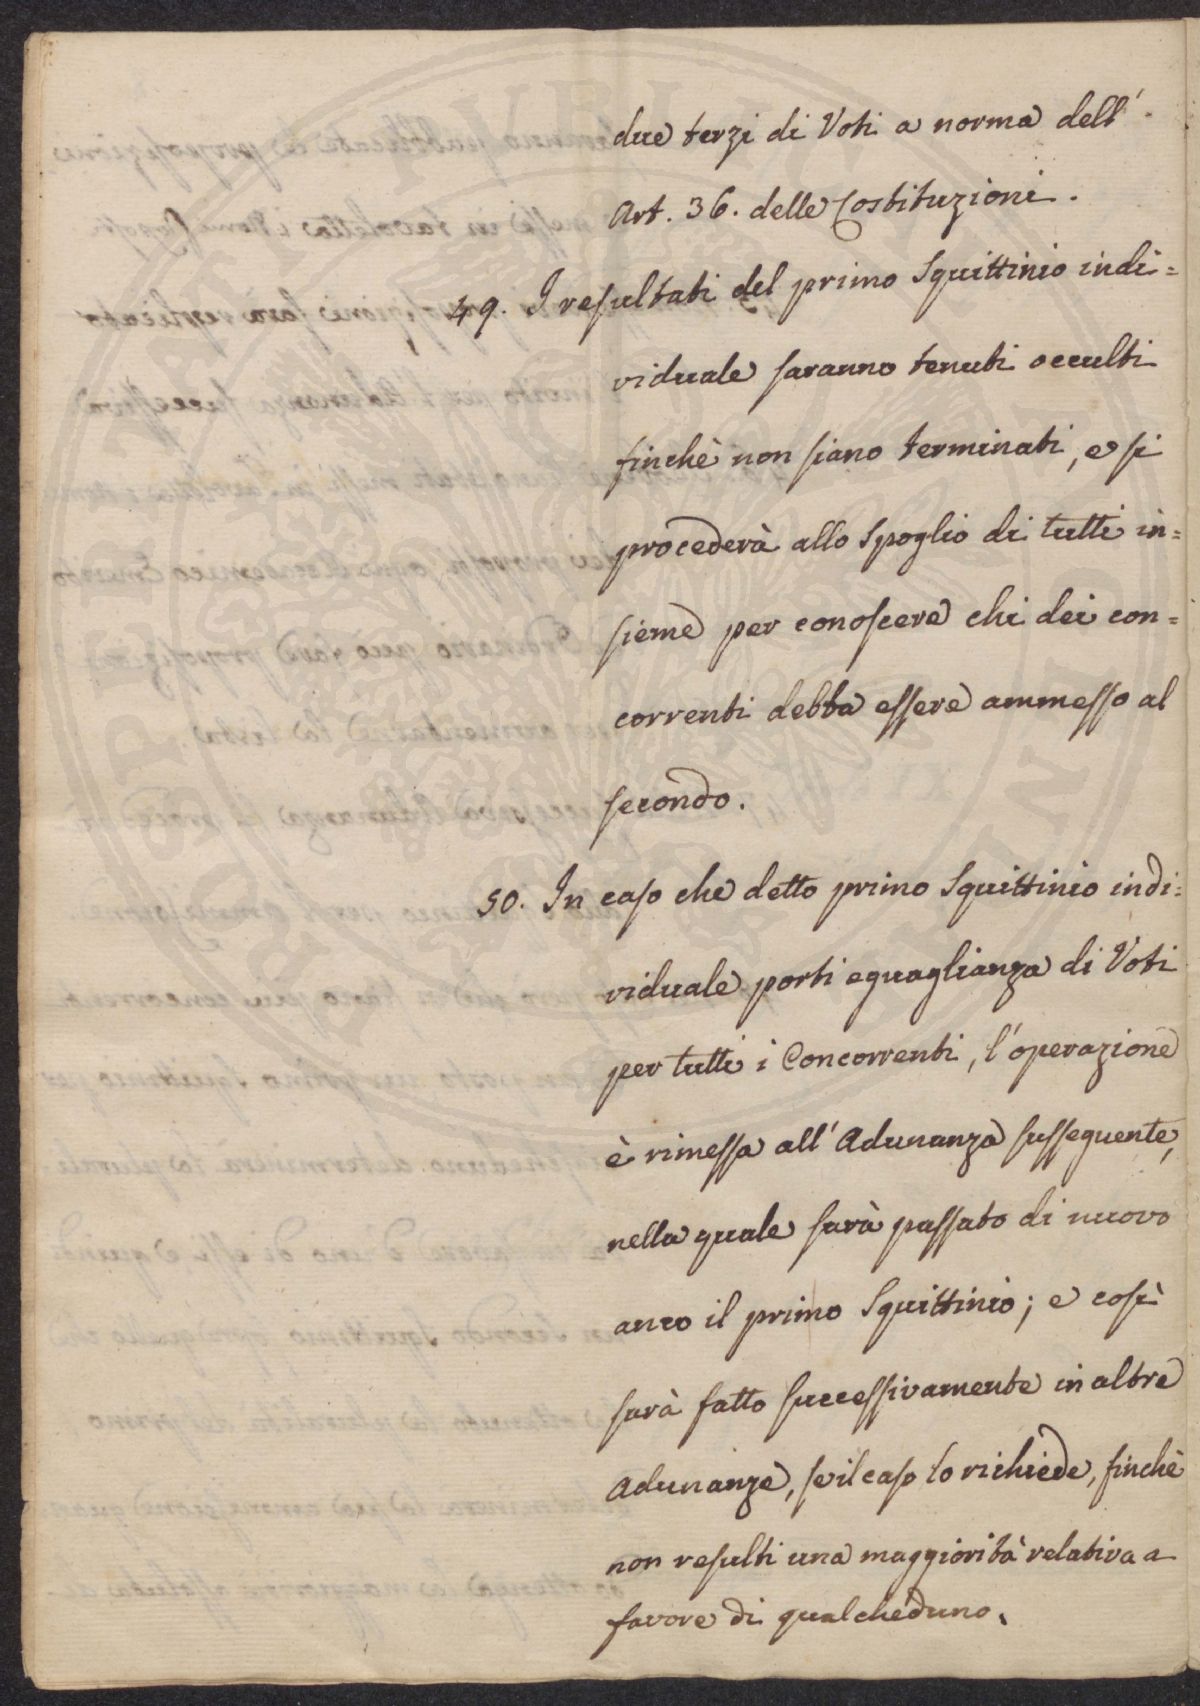 due terzi di Voti a norma dell'
Art. 36. delle Costituzioni.
49. I resultati del primo Squittinio indi=
viduale saranno tenuti occulti
finchè non siano terminati, e si
procederà allo Spoglio di tutti in=
sieme per conoscere chi dei con=
correnti debba essere ammesso al
secondo.
50. In caso che detto primo Squittinio indi=
viduale porti eguaglianza di Voti
per tutti i Concorrenti, l'operazione
è rimessa all'Adunanza susseguente,
nella quale sarà passato di nuovo
anco il primo Squittinio; e così
sarà fatto successivamente in altre
Adunanze, se il caso lo richiede, finchè
non resulti una maggiorità relativa a
favore di qualcheduno.